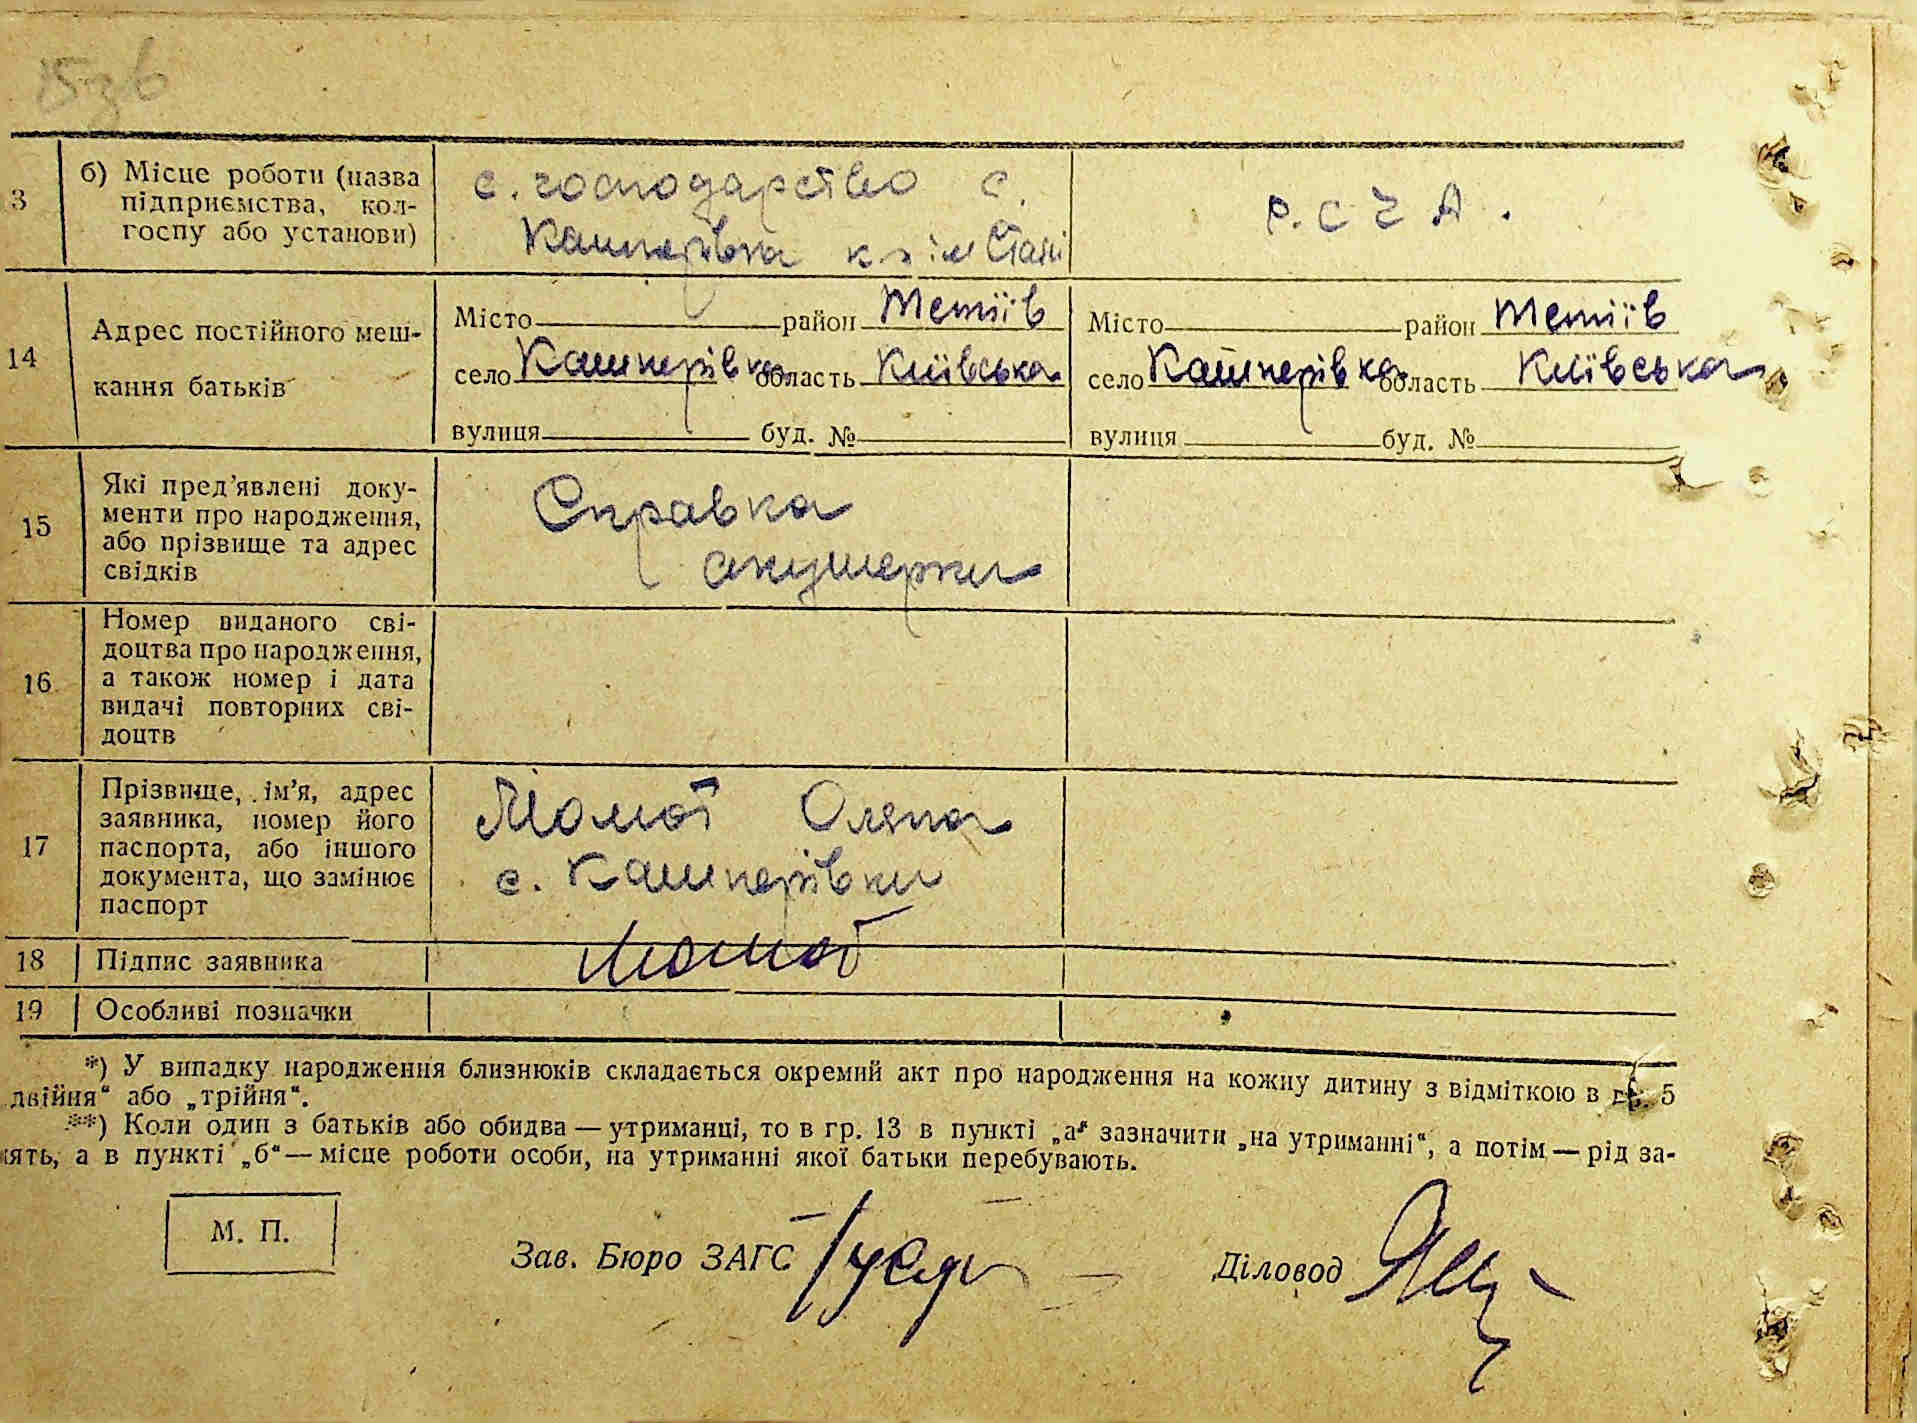 3
б) Місце роботи (назва
підприємства, кол-
госпу або установи)
с. господарство с.
Кашперівка к-з ім Сталі
Р. С Ч А.
14
Адрес постійного меш-
кання батьків
Місто район Тетіїв
село Кашперівка область Київська
вулиця буд. №
Місто район Тетіїв
село Кашперівка область Київська
вулиця буд. №
15
Які пред'явлені доку-
менти про народження,
або прізвище та адрес
свідків
Справка
акушерки
16
Номер виданого сві-
доцтва про народження,
а також номер і дата
видачі повторних сві-
доцтв
17
Прізвище, ім'я, адрес
заявника, номер його
паспорта, або іншого
документа, що замінює
паспорт
Момот Оляна
с. Кашперівки
18
Підпис заявника
Момот
19
Особливі позначки
*) У випадку народження близнюків складається окремий акт про народження на кожну дитину з відміткою в гр. 5
двійня“ або „трійня“.
**) Коли один з батьків або обидва — утриманці, то в гр. 13 в пункті „а“ зазначити „на утриманні“, а потім — рід за-
нять, а в пункті „б“ — місце роботи особи, на утриманні якої батьки перебувають.
М. П.
Зав. Бюро ЗАГС
Діловод